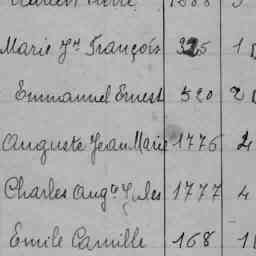 Marie Jh François 325 1
Emmanuel Ernest 520 2
Auguste Jean Marie 1776 2
Charles Augte Jules 1777 4
Emile Camille 168 1